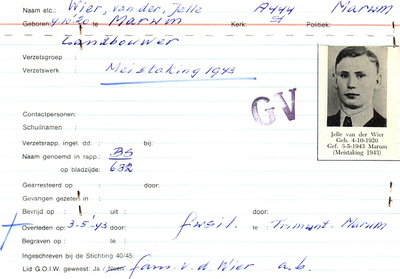 Naam etc.: Wier, van der, Jelle A444 Marum
Geboren: 4.10.'20 te Marum Kerk: Politiek:
Landbouwer
Verzetsgroep :
Verzetswerk : Meistaking 1943
GV
Contactpersonen:
Schuilnaam :
Verzetsrapp. ingel. dd. : bij:
Naam genoemd in rapp.: BS
op bladzijde: 632
Jelle van der Wier
Geb. 4-10-1920
Gef. 3-5-1943 Marum
(Meistaking 1943)
Gearresteerd op : door:
Gevangen gezeten in :
Bevrijd op : uit: door:
Overleden op: 3-5-'43 door: fusil. te: Trimunt-Marum
Begraven op : te:
Ingeschreven bij de Stichting 40/45:
Lid G.O.I.W. geweest: Ja / Neen fam. v.d. Wier a.b.